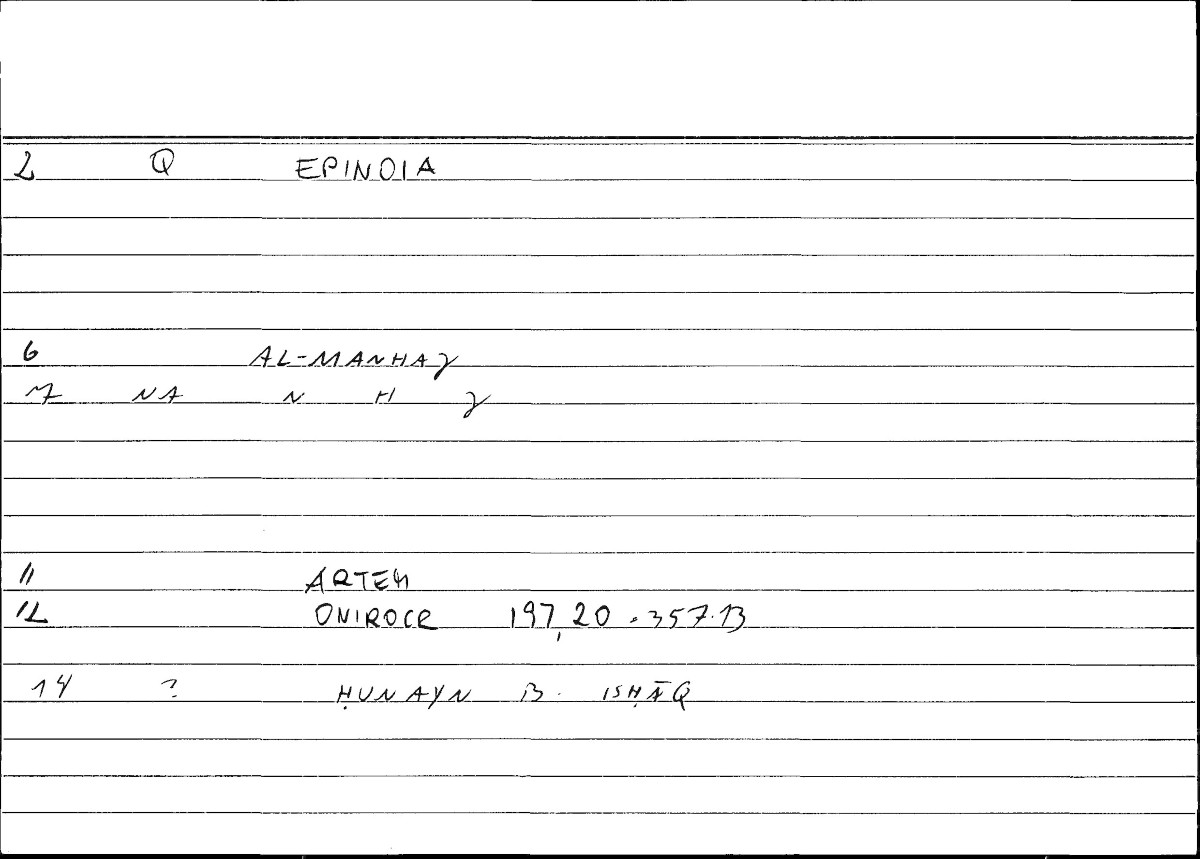 2 Q EPINOIA
6 AL-MANHAƔ
7 NA N H Ɣ
11 ARTEM
12 ONIROCR 197,20 . 357.13
14 ? ḤUNAYN B. ISḤĀQ